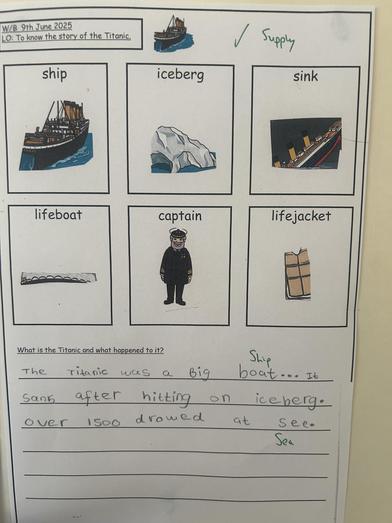 W/B 9th June 2025
LO: To know the story of the Titanic.
✓ Supply
ship
iceberg
sink
lifeboat
captain
lifejacket
What is the Titanic and what happened to it?
Ship
The Titanic was a Big boat... It
Sank after hitting on iceberg.
Over 1500 drowed at See.
Sea